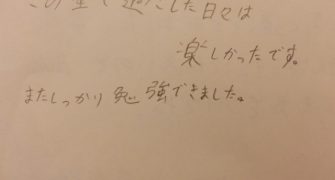 この室で過ごした日々は
楽しかったです。
またしっかり勉強できました。